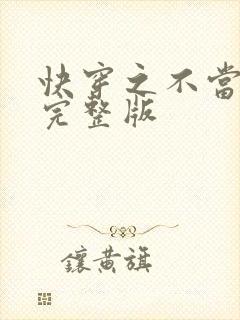 快穿之不當
完整版
鑲黃旗